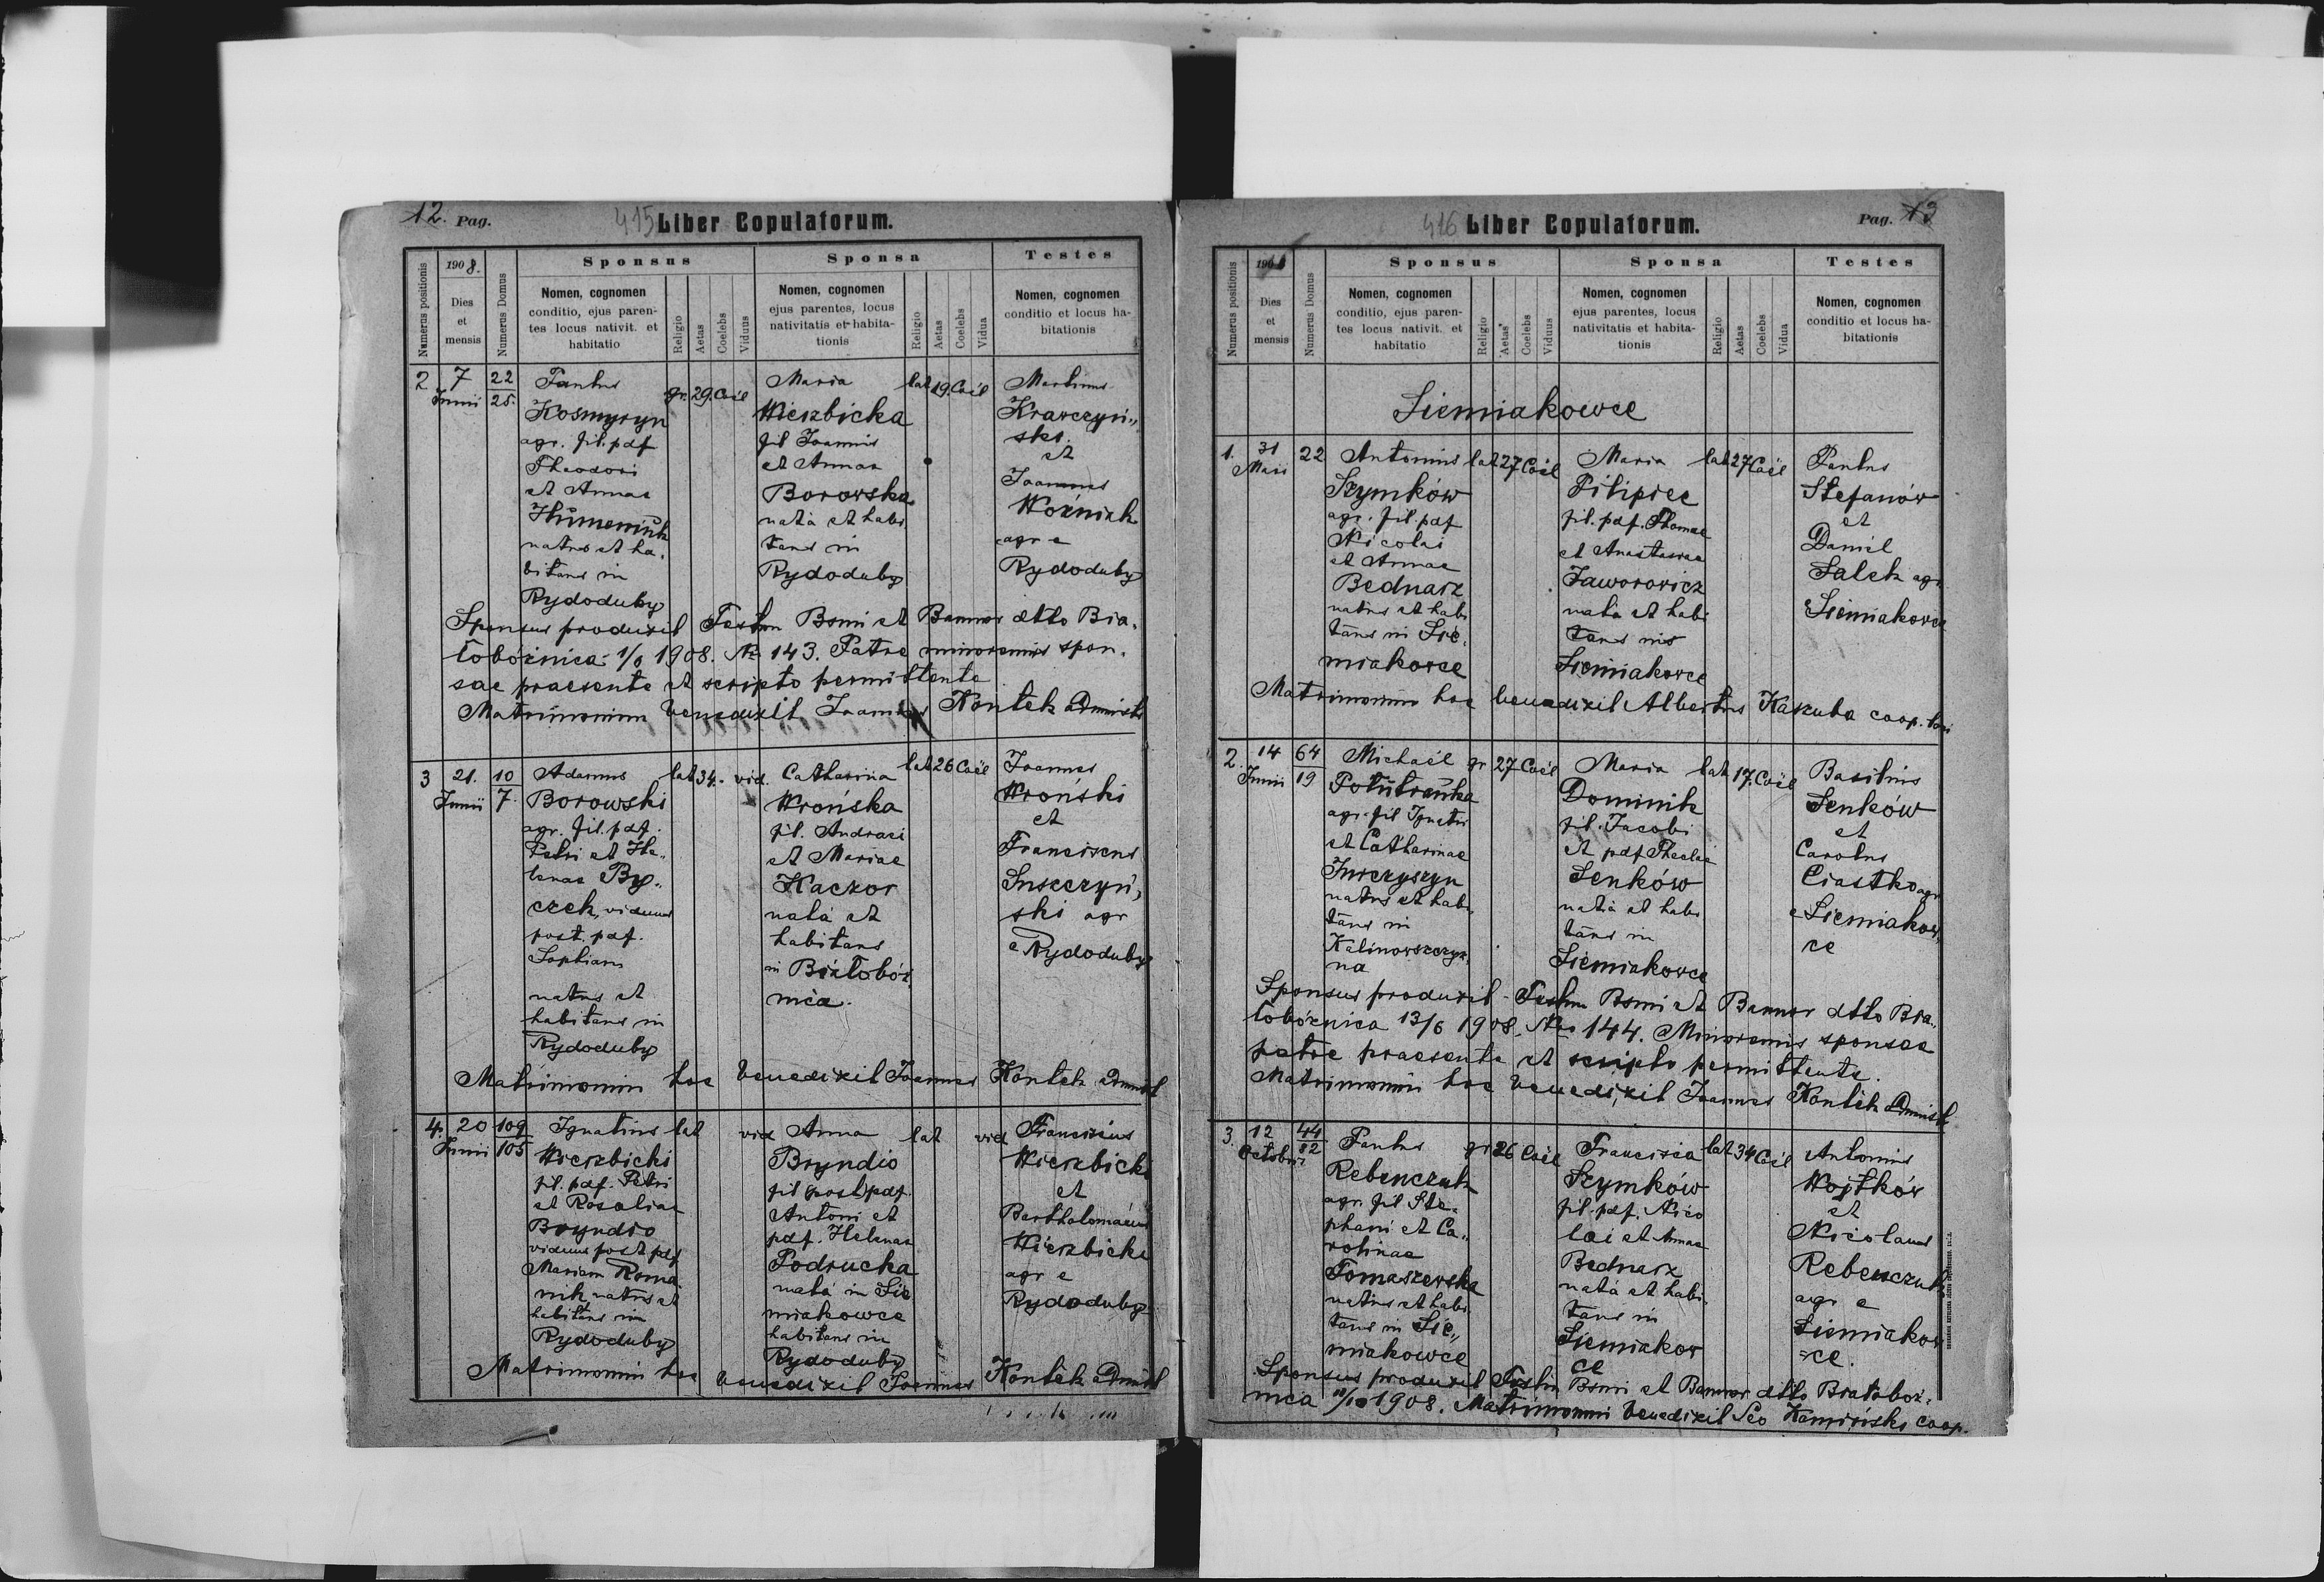 12. Pag.
415 Liber Copulatorum.
Numerus positionis
1908.
Dies
et
mensis
Numerus Domus
Sponsus
Nomen, cognomen
conditio, ejus paren-
tes locus nativit. et
habitatio
Religio
Aetas
Coelebs
Viduus
Sponsa
Nomen, cognomen
ejus parentes, locus
nativitatis et habita-
tionis
Religio
Aetas
Coelebs
Vidua
Testes
Nomen, cognomen
conditio et locus ha-
bitationis
2 7 Junii 22/25.
Paulus
Kosmyryn
agr. fil. pdf
Theodori
et Annae
Humeniuk
natus et ha-
bitans in
Rydoduby
gr. 29. Coel
Maria
Wierzbicka
fil Joannis
et Annae
Borowska
nata et habi
tans in
Rydoduby
lat 19. Coel
Martinus
Krawczyń„
ski.
et
Joannes
Woźniak
agr e
Rydoduby
Sponsus produxit Testm Bsmi et Bannor dtto Bia-
łobóżnica 1/6 1908. No 143. Patre minorennis spon-
sae praesente et scripto permittente
Matrimonium benedixit Joannes Kontek Administr
3 21. Junii 10/7.
Adamus
Borowski
agr. fil. pdf.
Petri et He„
lenae By„
czek, viduus
post. pdf.
Sophiam
natus et
habitans in
Rydoduby
lat 34. vid.
Catharina
Wrońska
fil. Andreae
et Mariae
Kaczor
nata et
habitans
in Białobóż
nica.
lat 26 Coel
Joannes
Wroński
et
Franciscus
Suszczyń,
ski agr
e Rydoduby
Matrimonium hoc benedixit Joannes Kontek Administ
4. 20 Junii 109/105
Ignatius
Wierzbicki
fil. pdf. Petri
et Rosaliae
Bryndio
viduus post pdf
Mariam Roma
nik natus et
habitans in
Rydoduby
lat vid
Anna
Bryndio
fil post pdf.
Antoni et
pdf. Helenae
Podrucka
nata in Sie
miakowce
habitans in
Rydoduby
lat vid
Franciscus
Wierzbicki
et
Bartholomaeus
Wierzbicki
agr e
Rydoduby
Matrimonium hoc benedixit Joannes Kontek Administ
416 Liber Copulatorum.
Pag. 13
Numerus positionis
190
Dies
et
mensis
Numerus Domus
Sponsus
Nomen, cognomen
conditio, ejus paren-
tes locus nativit. et
habitatio
Religio
Aetas
Coelebs
Viduus
Sponsa
Nomen, cognomen
ejus parentes, locus
nativitatis et habita-
tionis
Religio
Aetas
Coelebs
Vidua
Testes
Nomen, cognomen
conditio et locus ha-
bitationis
Siemiakowce
1. 31 Maii 22
Antonius
Szymków
agr. fil. pdf
Nicolai
et Annae
Bednarz
natus et habi
tans in Sie-
miakowce
lat 27 Coel
Maria
Pilipiec
fil. pdf. Thomae
et Anastasiae
Jaworowicz
nata et habi
tans in
Siemiakowce
lat 27 Coel
Paulus
Stefanów
et
Daniel
Salek agr
e Siemiakowce
Matrimonium hoc benedixit Albertus Kakuba coop.
2. 14 Junii 64/19
Michaël
Połutranka
agr. fil Ignatii
et Catharinae
Jurczyszyn
natus et habi
tans in
Kalinowszczyz-
na
gr 27 Coel
Maria
Dominik
fil. Jacobi
et pdf Theclae
Senków
nata et habi
tans in
Siemiakowce
lat 17. Coel
Basilius
Senków
et
Carolus
Ciastko agr
e Siemiakow„
ce
Sponsus produxit Testm Bsmi et Bannor dtto Bia„
łobóżnica 13/6 1908. No 144. Minorennis sponsae
patre praesente et scripto permittente.
Matrimonium hoc benedixit Joannes Kontek Administ
3. 12 Octobri 44/82
Paulus
Rebenczuk
agr. fil Ste-
phani et Ca„
rolinae
Tomaszewska
natus et habi
tans in Sie„
miakowce
gr 26 Coel
Francisca
Szymków
fil. pdf. Nico
lai et Annae
Bednarz
nata et habi-
tans in
Siemiakow
ce
lat 34 Coel
Antonius
Wojtków
et
Nicolaus
Rebenczuk
agr e
Siemiakow
ce.
Sponsus produxit Testm Bsmi et Bannor dtto Białobóż-
nica 1908. Matrimonium benedixit Leo Kamiński coop.